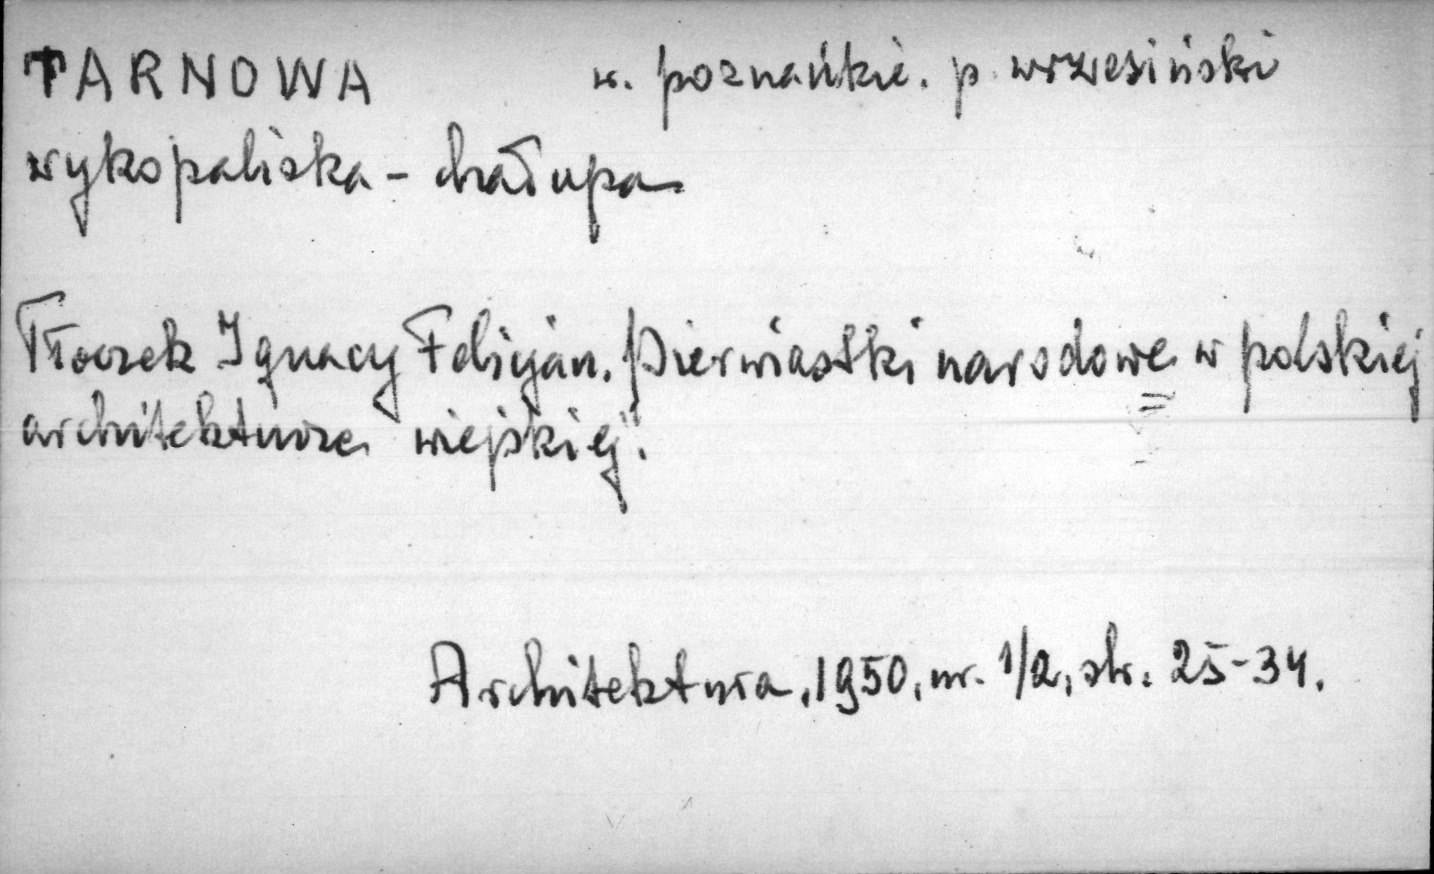 TARNOWA w. poznańkie. p. wrzesiński
wykopaliska - chałupa
Tłoczek Ignacy Felicjan. Pierwiastki narodowe w polskiej
architekturze wiejskiej".
Architektura, 1950, nr. 1/2, str. 25-34.